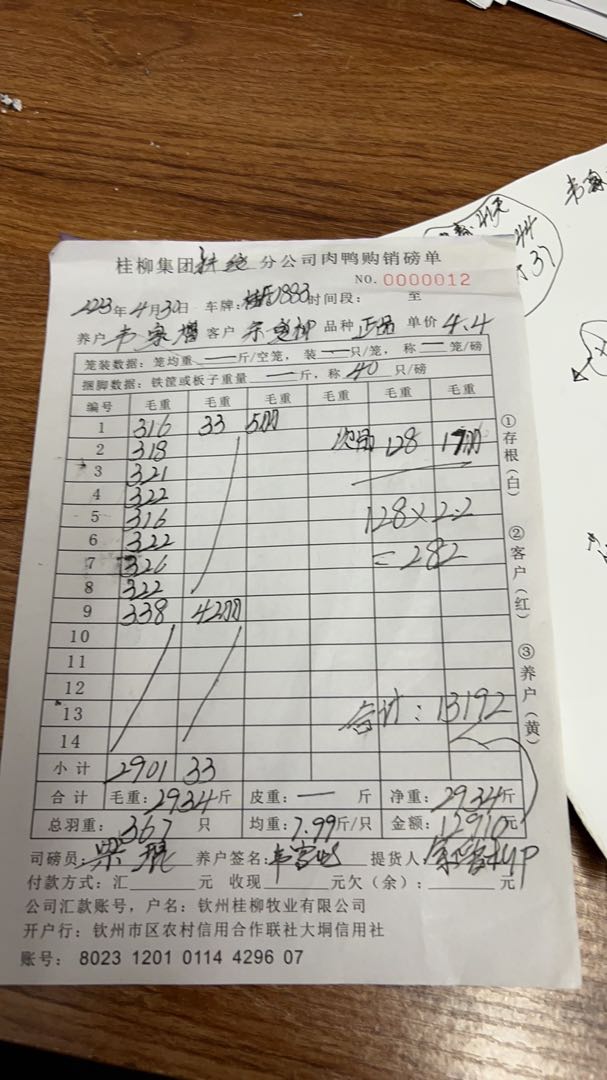 桂柳集团 分公司肉鸭购销磅单
NO. 0000012
2023年4月30日 车牌: 0883 时间段: 至
养户 韦家增 客户 品种 正品 单价 4.4
笼装数据: 笼均重 — 斤/空笼, 装 — 只/笼, 称 — 笼/磅
捆脚数据: 铁筐或板子重量 — 斤, 称 40 只/磅
编号 毛重 毛重 毛重 毛重 毛重 毛重
1 316 33 5只
2 318 次品 128 17只
3 321
4 322
5 316 128×2.2
6 322 =282
7 326
8 322
9 338 42只
10
11
12
13 合计: 13192
14
小计 2901 33
合计 毛重: 2934斤 皮重: — 斤 净重: 2934斤
总羽重: 367 只 均重: 7.99斤/只 金额: 12910元
司磅员: 梁 养户签名: 提货人:
付款方式: 汇 元 收现 元欠(余): 元
公司汇款账号, 户名: 钦州桂柳牧业有限公司
开户行: 钦州市区农村信用合作联社大垌信用社
账号: 8023 1201 0114 4296 07
①存根(白) ②客户(红) ③养户(黄)
44
37